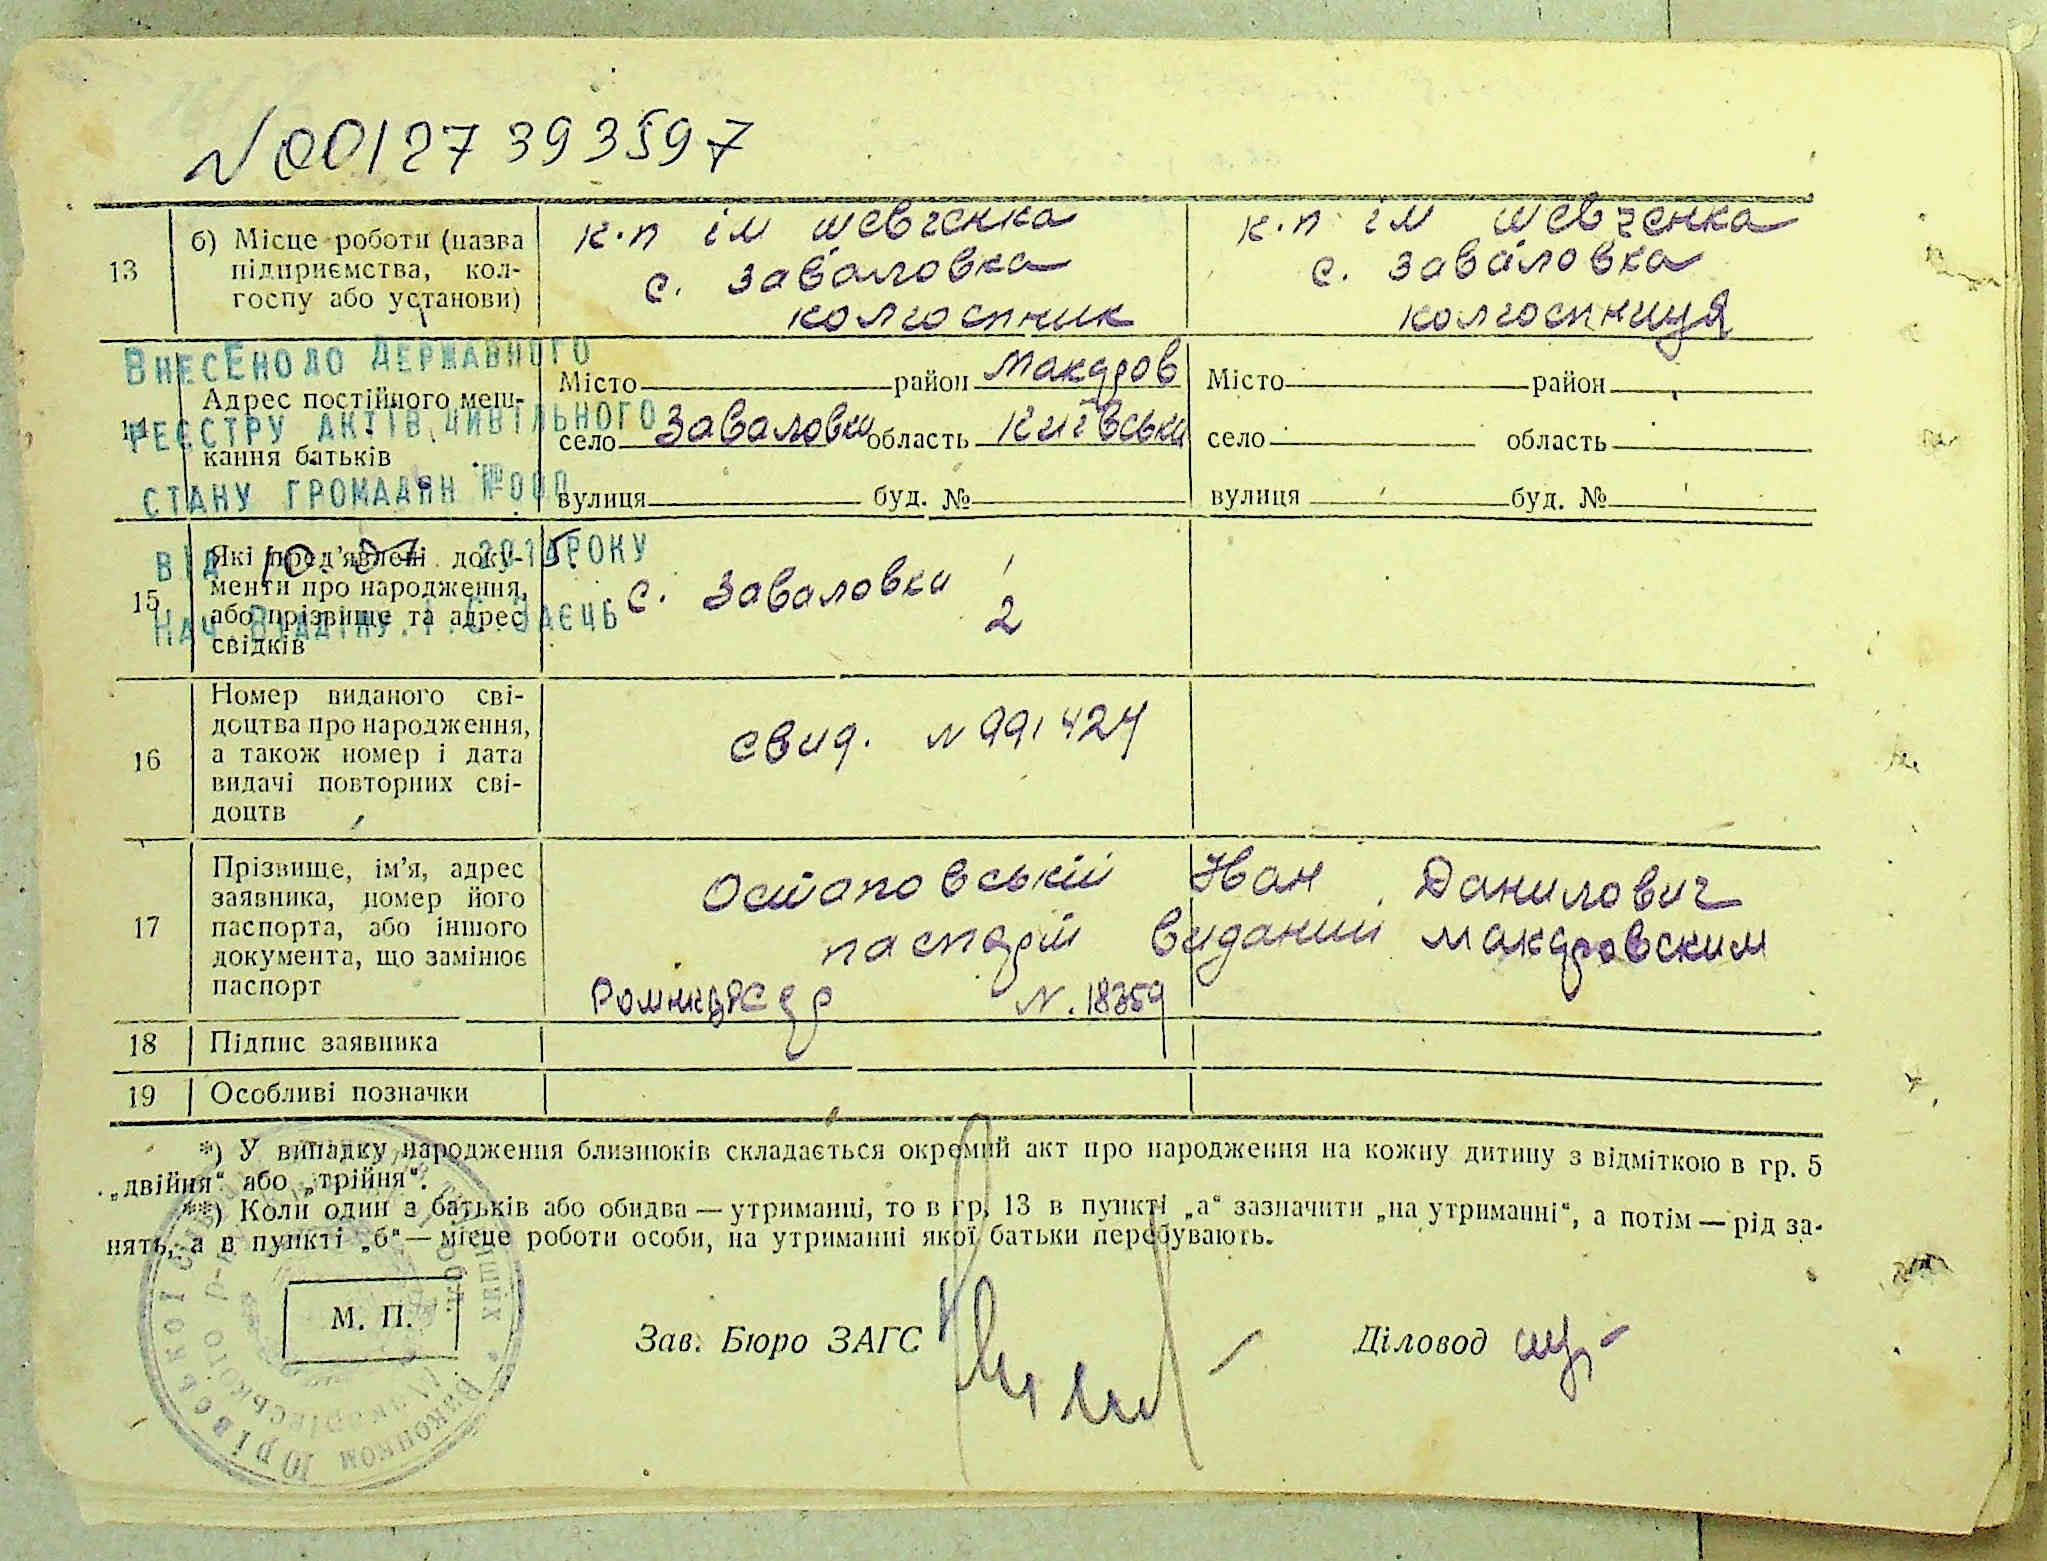 № 00127393597
13 б) Місце роботи (назва підприємства, колгоспу або установи)
к.п ім шевченка
с. заваловка
колгоспник
к.п ім шевченка
с. заваловка
колгоспниця
ВНЕСЕНО ДО ДЕРЖАВНОГО
РЕЄСТРУ АКТІВ ЦИВІЛЬНОГО
СТАНУ ГРОМАДЯН №000
ВІД 10. 07 2015 РОКУ
НАЧ. ВІДДІЛУ. І.С.ЗАЄЦЬ
14 Адрес постійного меш-
кання батьків
Місто район Макаров
село Заваловка область Київська
вулиця буд. №
Місто район
село область
вулиця буд. №
15 Які пред'явлені доку-
менти про народження,
або прізвище та адрес
свідків
с. Заваловка 1
2
16 Номер виданого сві-
доцтва про народження,
а також номер і дата
видачі повторних сві-
доцтв
свид. № 991424
17 Прізвище, ім'я, адрес
заявника, номер його
паспорта, або іншого
документа, що замінює
паспорт
Остаповський Іван Данилович
паспорт виданий макаровским
N. 18359
18 Підпис заявника
19 Особливі позначки
*) У випадку народження близнюків складається окремий акт про народження на кожну дитину з відміткою в гр. 5
„двійня“ або „трійня“.
**) Коли один з батьків або обидва — утриманці, то в гр. 13 в пункті „а“ зазначити „на утриманні“, а потім — рід за-
нять, а в пункті „б“ — місце роботи особи, на утриманні якої батьки перебувають.
М. П.
Зав. Бюро ЗАГС
Діловод
Виконком Юрівської
Макарівського р-ну